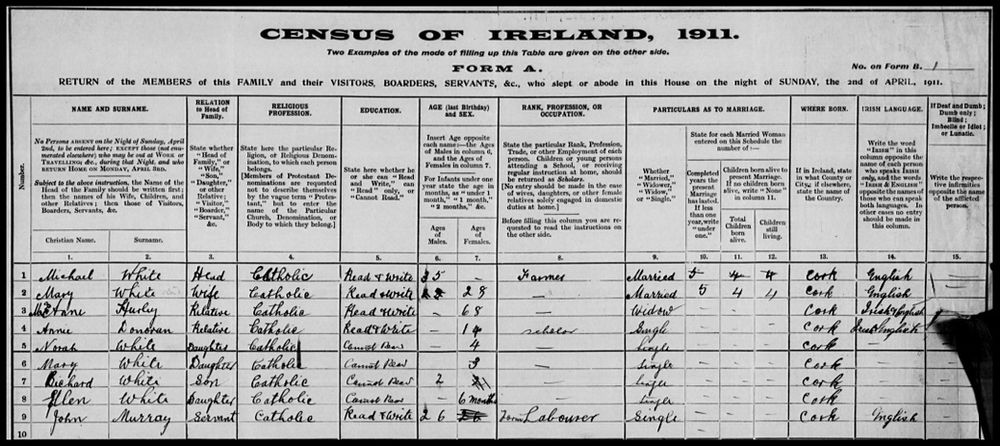 CENSUS OF IRELAND, 1911.
Two Examples of the mode of filling up this Table are given on the other side.
FORM A.
No. on Form B. 1
RETURN of the MEMBERS of this FAMILY and their VISITORS, BOARDERS, SERVANTS, &c., who slept or abode in this House on the night of SUNDAY, the 2nd of APRIL, 1911.
Number.
NAME AND SURNAME.
No Persons absent on the Night of Sunday, April 2nd, to be entered here; except those (not enumerated elsewhere) who may be out at Work or Travelling, &c., during that Night, and who Return Home on Monday, April 3rd.
Subject to the above instruction, the Name of the Head of the Family should be written first; then the names of his Wife, Children, and other Relatives; then those of Visitors, Boarders, Servants, &c.
Christian Name. Surname.
RELATION to Head of Family.
State whether "Head of Family," or "Wife," "Son," "Daughter," or other Relative; "Visitor," "Boarder," "Servant," &c.
RELIGIOUS PROFESSION.
State here the particular Religion, or Religious Denomination, to which each person belongs.
[Members of Protestant Denominations are requested not to describe themselves by the vague term "Protestant," but to enter the name of the Particular Church, Denomination, or Body to which they belong.]
EDUCATION.
State here whether he or she can "Read and Write," can "Read" only, or "Cannot Read."
AGE (last Birthday) and SEX.
Insert Age opposite each name:—the Ages of Males in column 6, and the Ages of Females in column 7.
For Infants under one year state the age in months, as "under 1 month," "1 month," "2 months," &c.
Ages of Males.
Ages of Females.
RANK, PROFESSION, OR OCCUPATION.
State the particular Rank, Profession, Trade, or other Employment of each person. Children or young persons attending a School, or receiving regular instruction at home, should be returned as Scholars.
[No entry should be made in the case of wives, daughters, or other female relatives solely engaged in domestic duties at home.]
Before filling this column you are requested to read the instructions on the other side.
PARTICULARS AS TO MARRIAGE.
Whether "Married," "Widower," "Widow," or "Single."
State for each Married Woman entered on this Schedule the number of :—
Completed years the present Marriage has lasted. If less than one year, write "under one."
Children born alive to present Marriage. If no children born alive, write "None" in column 11.
Total Children born alive.
Children still living.
WHERE BORN.
If in Ireland, state in what County or City; if elsewhere, state the name of the Country.
IRISH LANGUAGE.
Write the word "Irish" in this column opposite the name of each person who speaks Irish only, and the words "Irish & English" opposite the names of those who can speak both languages. In other cases no entry should be made in this column.
If Deaf and Dumb; Dumb only; Blind; Imbecile or Idiot; or Lunatic.
Write the respective infirmities opposite the name of the afflicted person.
1. 2. 3. 4. 5. 6. 7. 8. 9. 10. 11. 12. 13. 14. 15.
1 Michael White Head Catholic Read & Write 35 - Farmer Married 5 4 4 Cork English
2 Mary White Wife Catholic Read & Write 28 — Married 5 4 4 Cork English
3 Hurley Relative Catholic Read & Write - 68 — Widow — — — Cork Irish & English
4 Annie Donovan Relative Catholic Read & Write - 14 scholar Single — — — Cork Irish & English
5 Norah White Daughter Catholic Cannot Read - 4 — Single — — — Cork —
6 Mary White Daughter Catholic Cannot Read - 3 — Single — — — Cork —
7 Richard White Son Catholic Cannot Read 2 — Single — — — Cork —
8 Ellen White Daughter Catholic Cannot Read - 6 months — Single — — — Cork —
9 John Murray Servant Catholic Read & Write 26 Farm Labourer Single — — — Cork English
10